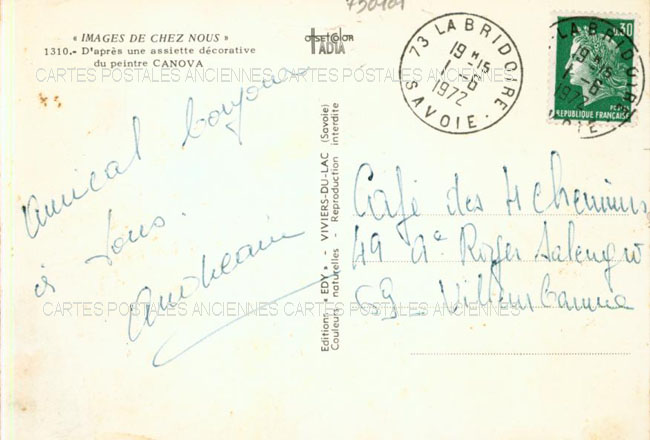 730101
« IMAGES DE CHEZ NOUS »
1310.- D'après une assiette décorative
du peintre CANOVA
OFFSETCOLOR
IADTA
73 LA BRIDOIRE
19 H 15
1-6
1972
SAVOIE
0,30
RÉPUBLIQUE FRANÇAISE
LA BRIDOIRE
19 H 15
1-6
1972
CARTES POSTALES ANCIENNES CARTES POSTALES ANCIENNES
Amical bonjour
à tous.
Editions « EDY » - VIVIERS-DU-LAC (Savoie)
Couleurs naturelles - Reproduction interdite
Café des 4 chemins
49 Ae Roger Salengro
69 - Villeurbanne
CARTES POSTALES ANCIENNES CARTES POSTALES ANCIENNES